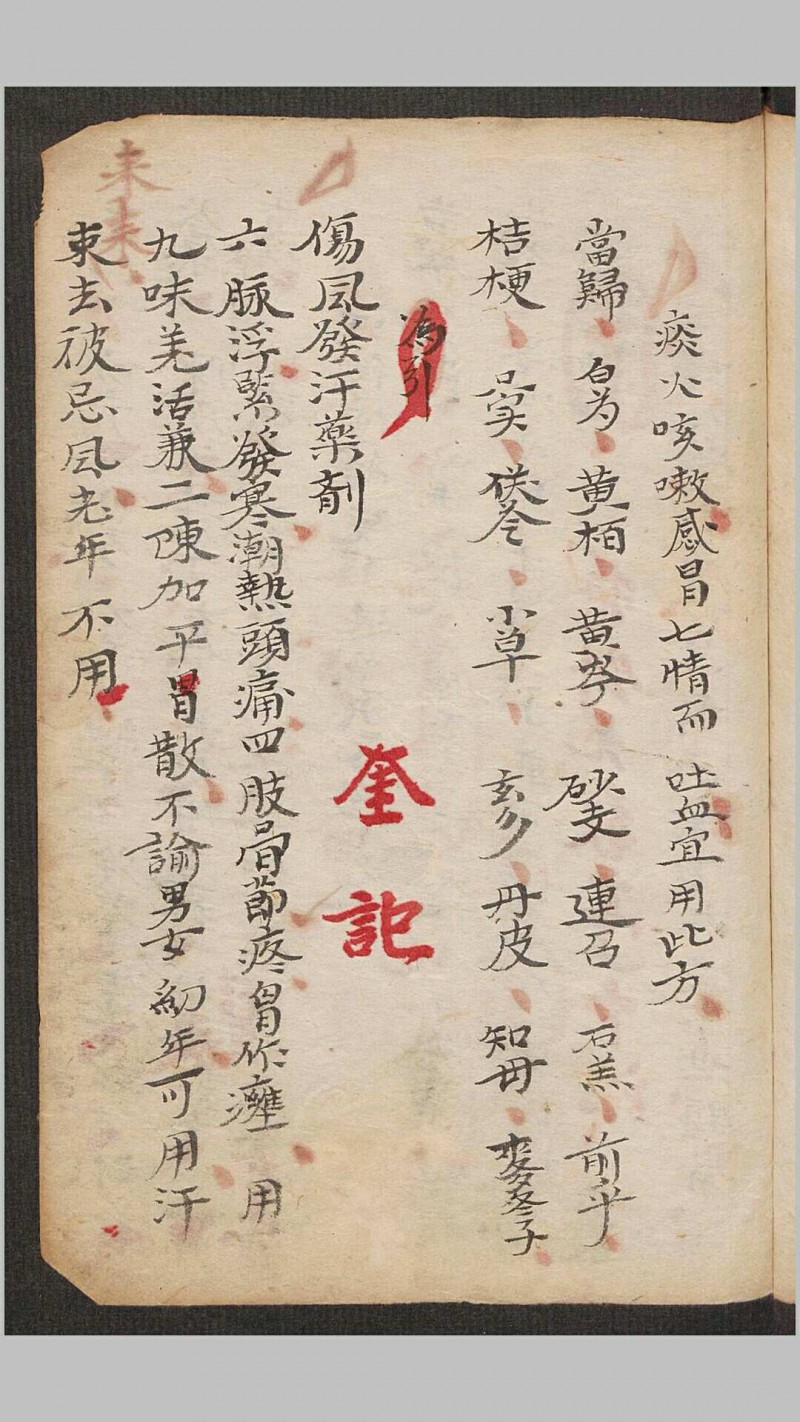 痰火咳嗽感冒七情而吐血宜用此方
當歸 白為 黄柏 黄芩 連召 石羔 前乎
桔梗 伏苓 小草 丹皮 知母 麥冬子
為引
奎記
傷風發汗藥剤
六脉浮緊發寒潮熱頭痛四肢骨節疼胃作 用
九味羌活兼二陳加平胃散不諭男女幼年可用汗
来去彼忌風老年不用
未